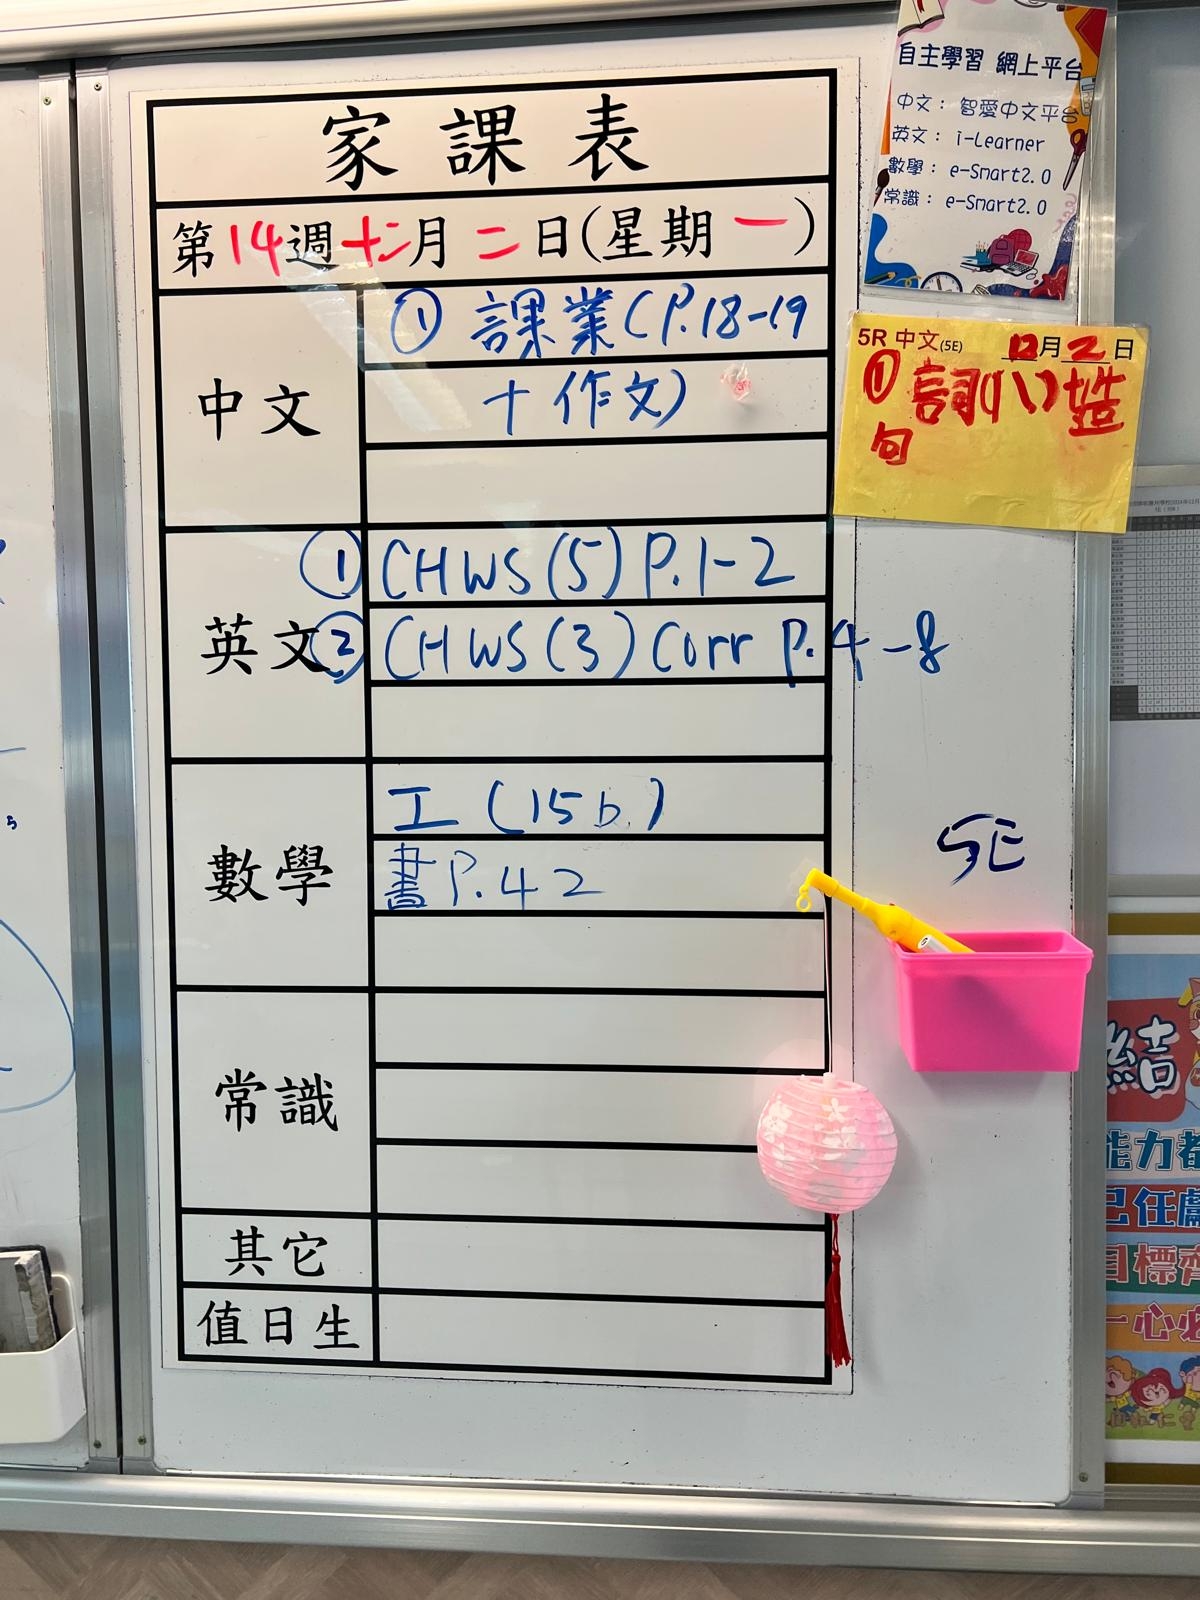 家課表
第14週十二月二日(星期一)
中文
① 課業(P.18-19
+作文)
英文
① CHWS(5) P.1-2
② CHWS(3) Corr P.4-8
數學
工(15b)
書P.42
常識
其它
值日生
自主學習 網上平台
中文: 智愛中文平台
英文: i-Learner
數學: e-Smart2.0
常識: e-Smart2.0
5R 中文(5E) 12月2日
① 詞(八)造
句
5E
結
能力都
己任獻
目標齊
一心必